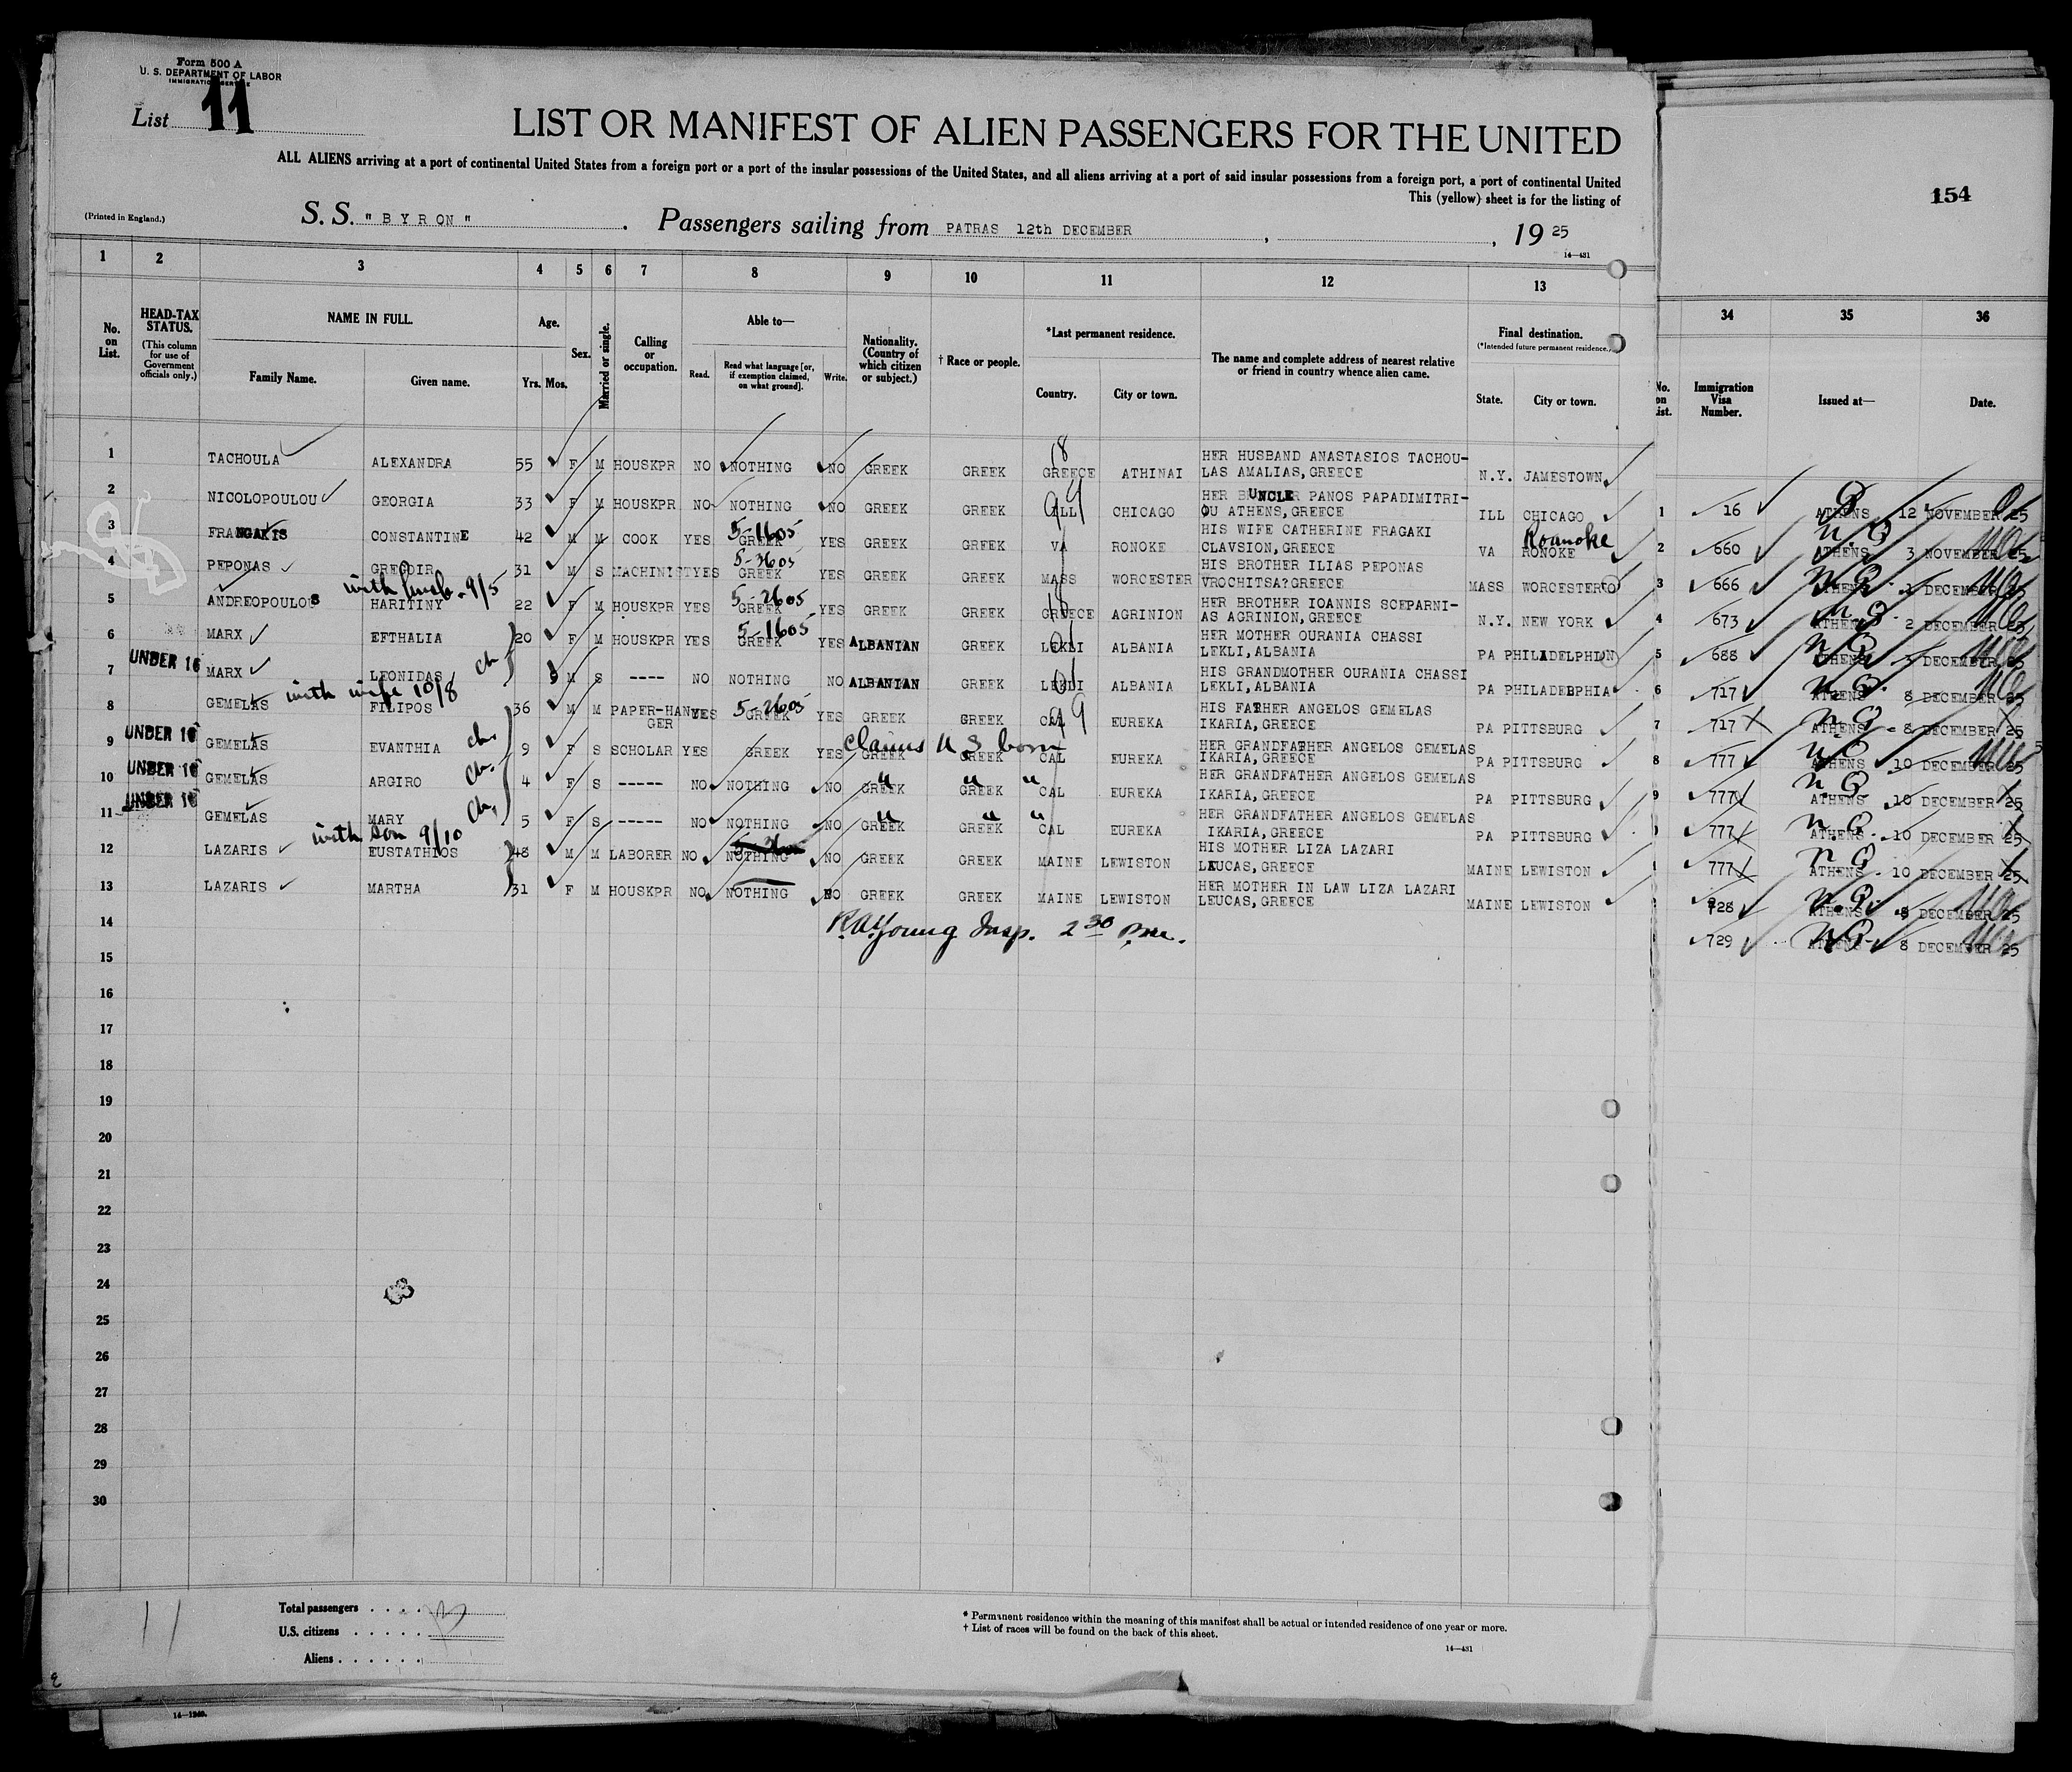 Form 500 A
U. S. DEPARTMENT OF LABOR
IMMIGRATION SERVICE
List 11
LIST OR MANIFEST OF ALIEN PASSENGERS FOR THE UNITED
ALL ALIENS arriving at a port of continental United States from a foreign port or a port of the insular possessions of the United States, and all aliens arriving at a port of said insular possessions from a foreign port, a port of continental United
This (yellow) sheet is for the listing of
154
(Printed in England.)
S. S. "BYRON" . Passengers sailing from PATRAS 12th DECEMBER , , 19 25
14—431
1 2 3 4 5 6 7 8 9 10 11 12 13 34 35 36
No. on List.
HEAD-TAX STATUS.
(This column for use of Government officials only.)
NAME IN FULL.
Family Name. Given name.
Age.
Yrs. Mos.
Sex.
Married or single.
Calling or occupation.
Able to—
Read. Read what language [or, if exemption claimed, on what ground]. Write.
Nationality. (Country of which citizen or subject.)
† Race or people.
*Last permanent residence.
Country. City or town.
The name and complete address of nearest relative or friend in country whence alien came.
Final destination.
(*Intended future permanent residence.)
State. City or town.
No. on List.
Immigration Visa Number.
Issued at—
Date.
1 TACHOULA ALEXANDRA 55 F M HOUSKPR NO NOTHING NO GREEK GREEK GREECE ATHINAI HER HUSBAND ANASTASIOS TACHOU-
LAS AMALIAS, GREECE N.Y. JAMESTOWN
2 NICOLOPOULOU GEORGIA 33 F M HOUSKPR NO NOTHING NO GREEK GREEK ILL CHICAGO HER UNCLE PANOS PAPADIMITRI-
OU ATHENS, GREECE ILL CHICAGO
3 FRANGAKIS CONSTANTINE 42 M M COOK YES 5-1605 GREEK YES GREEK GREEK VA RONOKE HIS WIFE CATHERINE FRAGAKI
CLAVSION, GREECE VA RONOKE Roanoke
4 PEPONAS GREGOIR 31 M S MACHINIST YES 5-3605 GREEK YES GREEK GREEK MASS WORCESTER HIS BROTHER ILIAS PEPONAS
VROCHITSA?GREECE MASS WORCESTER
with husb. 9/5
5 ANDREOPOULOS HARITINY 22 F M HOUSKPR YES 5-2605 GREEK YES GREEK GREEK GREECE AGRINION HER BROTHER IOANNIS SCEPARNI-
AS AGRINION, GREECE N.Y. NEW YORK
6 MARX EFTHALIA 20 F M HOUSKPR YES 5-1605 GREEK YES ALBANIAN GREEK LEKLI ALBANIA HER MOTHER OURANIA CHASSI
LEKLI, ALBANIA PA PHILADELPHIN
UNDER 16
7 MARX LEONIDAS ch 3 M S ---- NO NOTHING NO ALBANIAN GREEK LEKLI ALBANIA HIS GRANDMOTHER OURANIA CHASSI
LEKLI, ALBANIA PA PHILADEBPHIA
with wife 10/8
8 GEMELAS FILIPOS 36 M M PAPER-HAN
GER YES 5-2605 GREEK YES GREEK GREEK CAL EUREKA HIS FATHER ANGELOS GEMELAS
IKARIA, GREECE PA PITTSBURG
UNDER 16
9 GEMELAS EVANTHIA ch. 9 F S SCHOLAR YES GREEK YES GREEK GREEK CAL EUREKA HER GRANDFATHER ANGELOS GEMELAS
IKARIA, GREECE PA PITTSBURG
claims U S born
UNDER 16
10 GEMELAS ARGIRO ch. 4 F S ----- NO NOTHING NO GREEK GREEK CAL EUREKA HER GRANDFATHER ANGELOS GEMELAS
IKARIA, GREECE PA PITTSBURG
" " "
UNDER 16
11 GEMELAS MARY ch. 5 F S ----- NO NOTHING NO GREEK GREEK CAL EUREKA HER GRANDFATHER ANGELOS GEMELAS
IKARIA, GREECE PA PITTSBURG
" " "
with son 9/10
12 LAZARIS EUSTATHIOS 48 M M LABORER NO NOTHING NO GREEK GREEK MAINE LEWISTON HIS MOTHER LIZA LAZARI
LEUCAS, GREECE MAINE LEWISTON
13 LAZARIS MARTHA 31 F M HOUSKPR NO NOTHING NO GREEK GREEK MAINE LEWISTON HER MOTHER IN LAW LIZA LAZARI
LEUCAS, GREECE MAINE LEWISTON
R.A. Young Insp. 2 30 p.m.
14
15
16
17
18
19
20
21
22
23
24
25
26
27
28
29
30
1 16 ATHENS 12 NOVEMBER 25
2 660 ATHENS 3 NOVEMBER 25
3 666 ATHENS DECEMBER 25
4 673 ATHENS 2 DECEMBER 25
5 688 ATHENS DECEMBER 25
6 717 ATHENS 8 DECEMBER 25
7 717 ATHENS 8 DECEMBER 25
8 777 ATHENS 10 DECEMBER 25
9 777 ATHENS 10 DECEMBER 25
777 ATHENS 10 DECEMBER 25
777 ATHENS 10 DECEMBER 25
728 ATHENS 8 DECEMBER 25
729 ATHENS 8 DECEMBER 25
11
Total passengers . . . . 13
U.S. citizens . . . . .
Aliens . . . . . .
* Permanent residence within the meaning of this manifest shall be actual or intended residence of one year or more.
† List of races will be found on the back of this sheet.
14—431
14—1240.